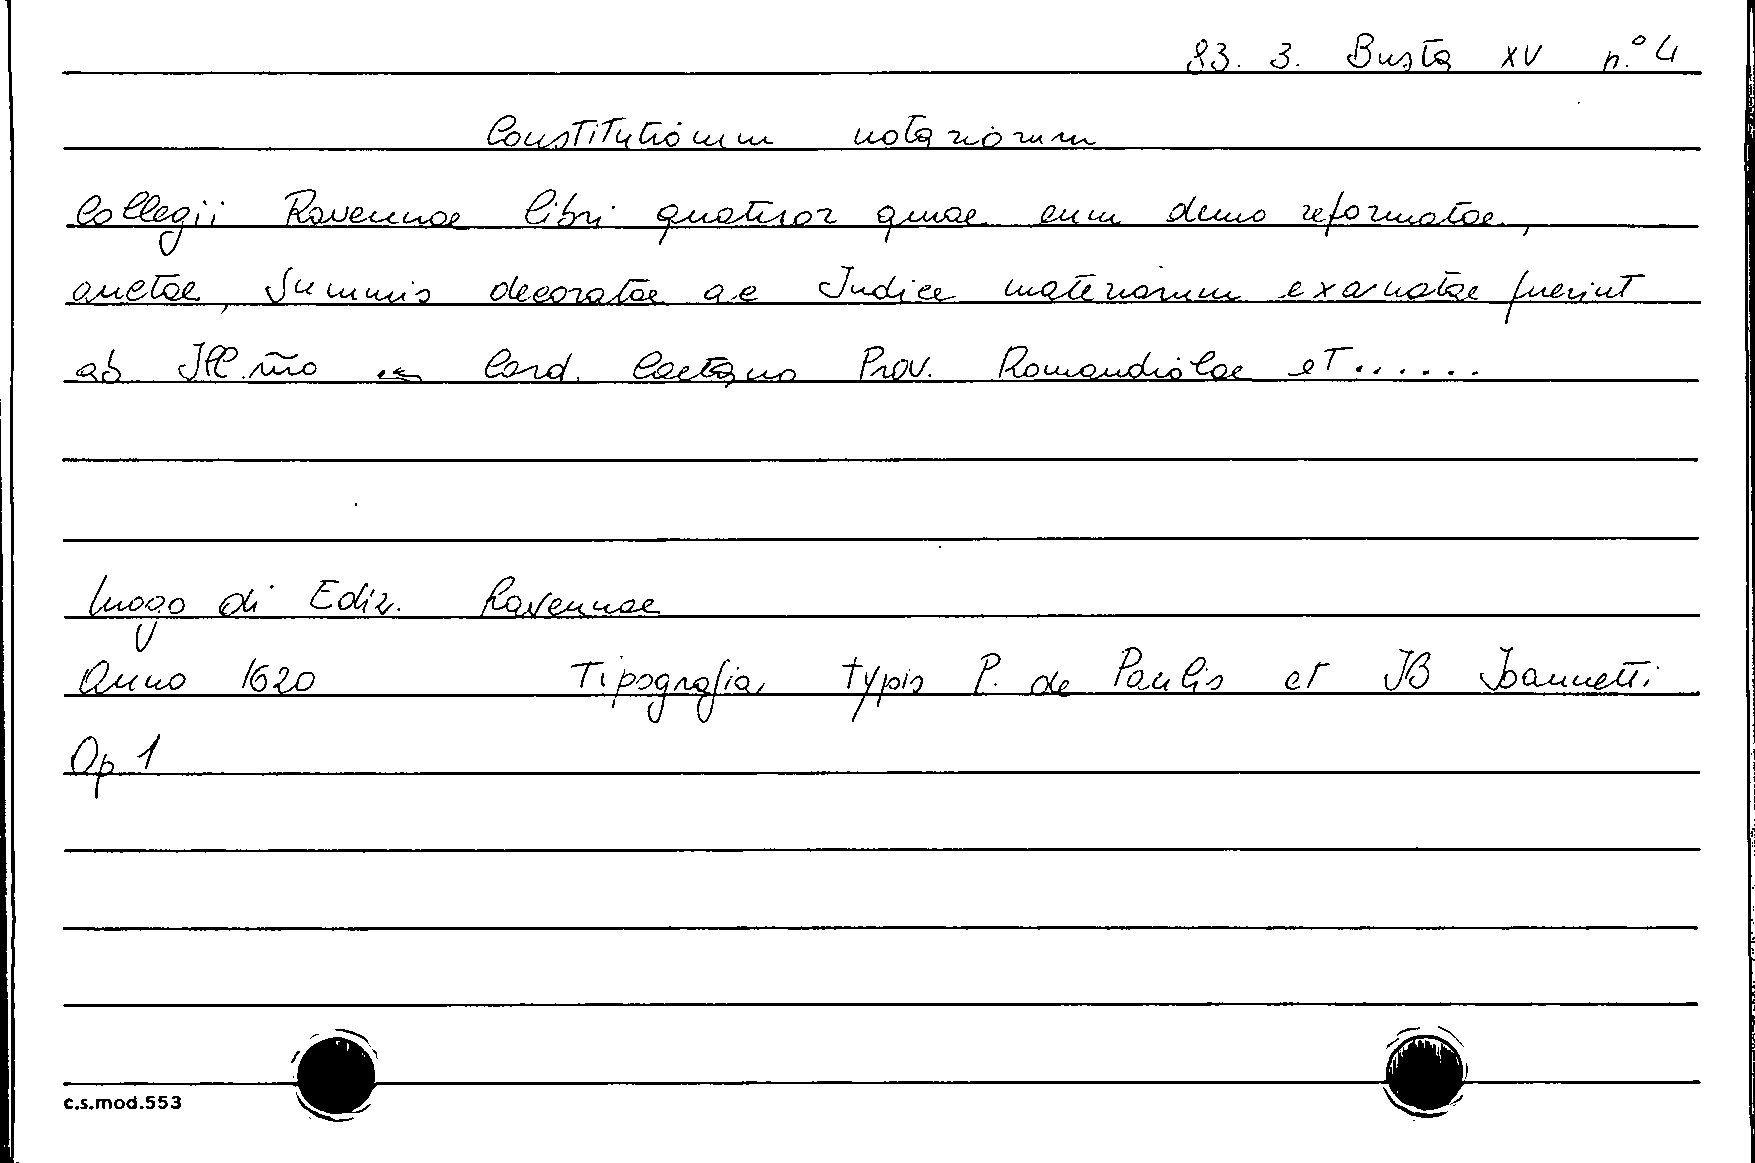 83. 3. Busta XV n.° 4
Constitutionum notariorum
Collegii Ravennae libri quatuor quae cum demo reformatae,
auctae, Summis decoratae ac Indice materiarum exarnatae fuerint
ab Ill.mo Card. Caetano Prov. Romandiolae et......
luogo di Ediz. Ravennae
Anno 1620 Tipografia, typis P. de Paulis et JB Joannetti
Op 1
c.s.mod.553